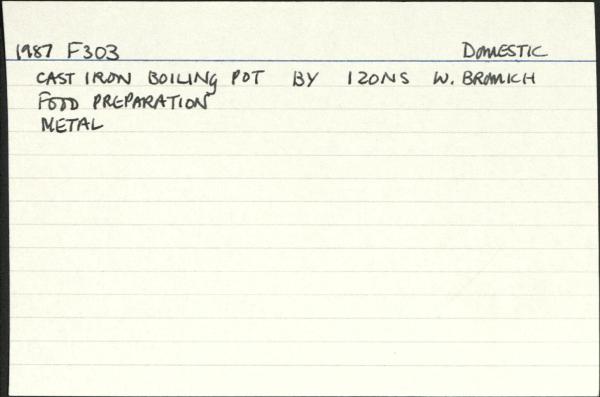 1987 F303 DOMESTIC
CAST IRON BOILING POT BY IZONS W. BROMICH
FOOD PREPARATION
METAL